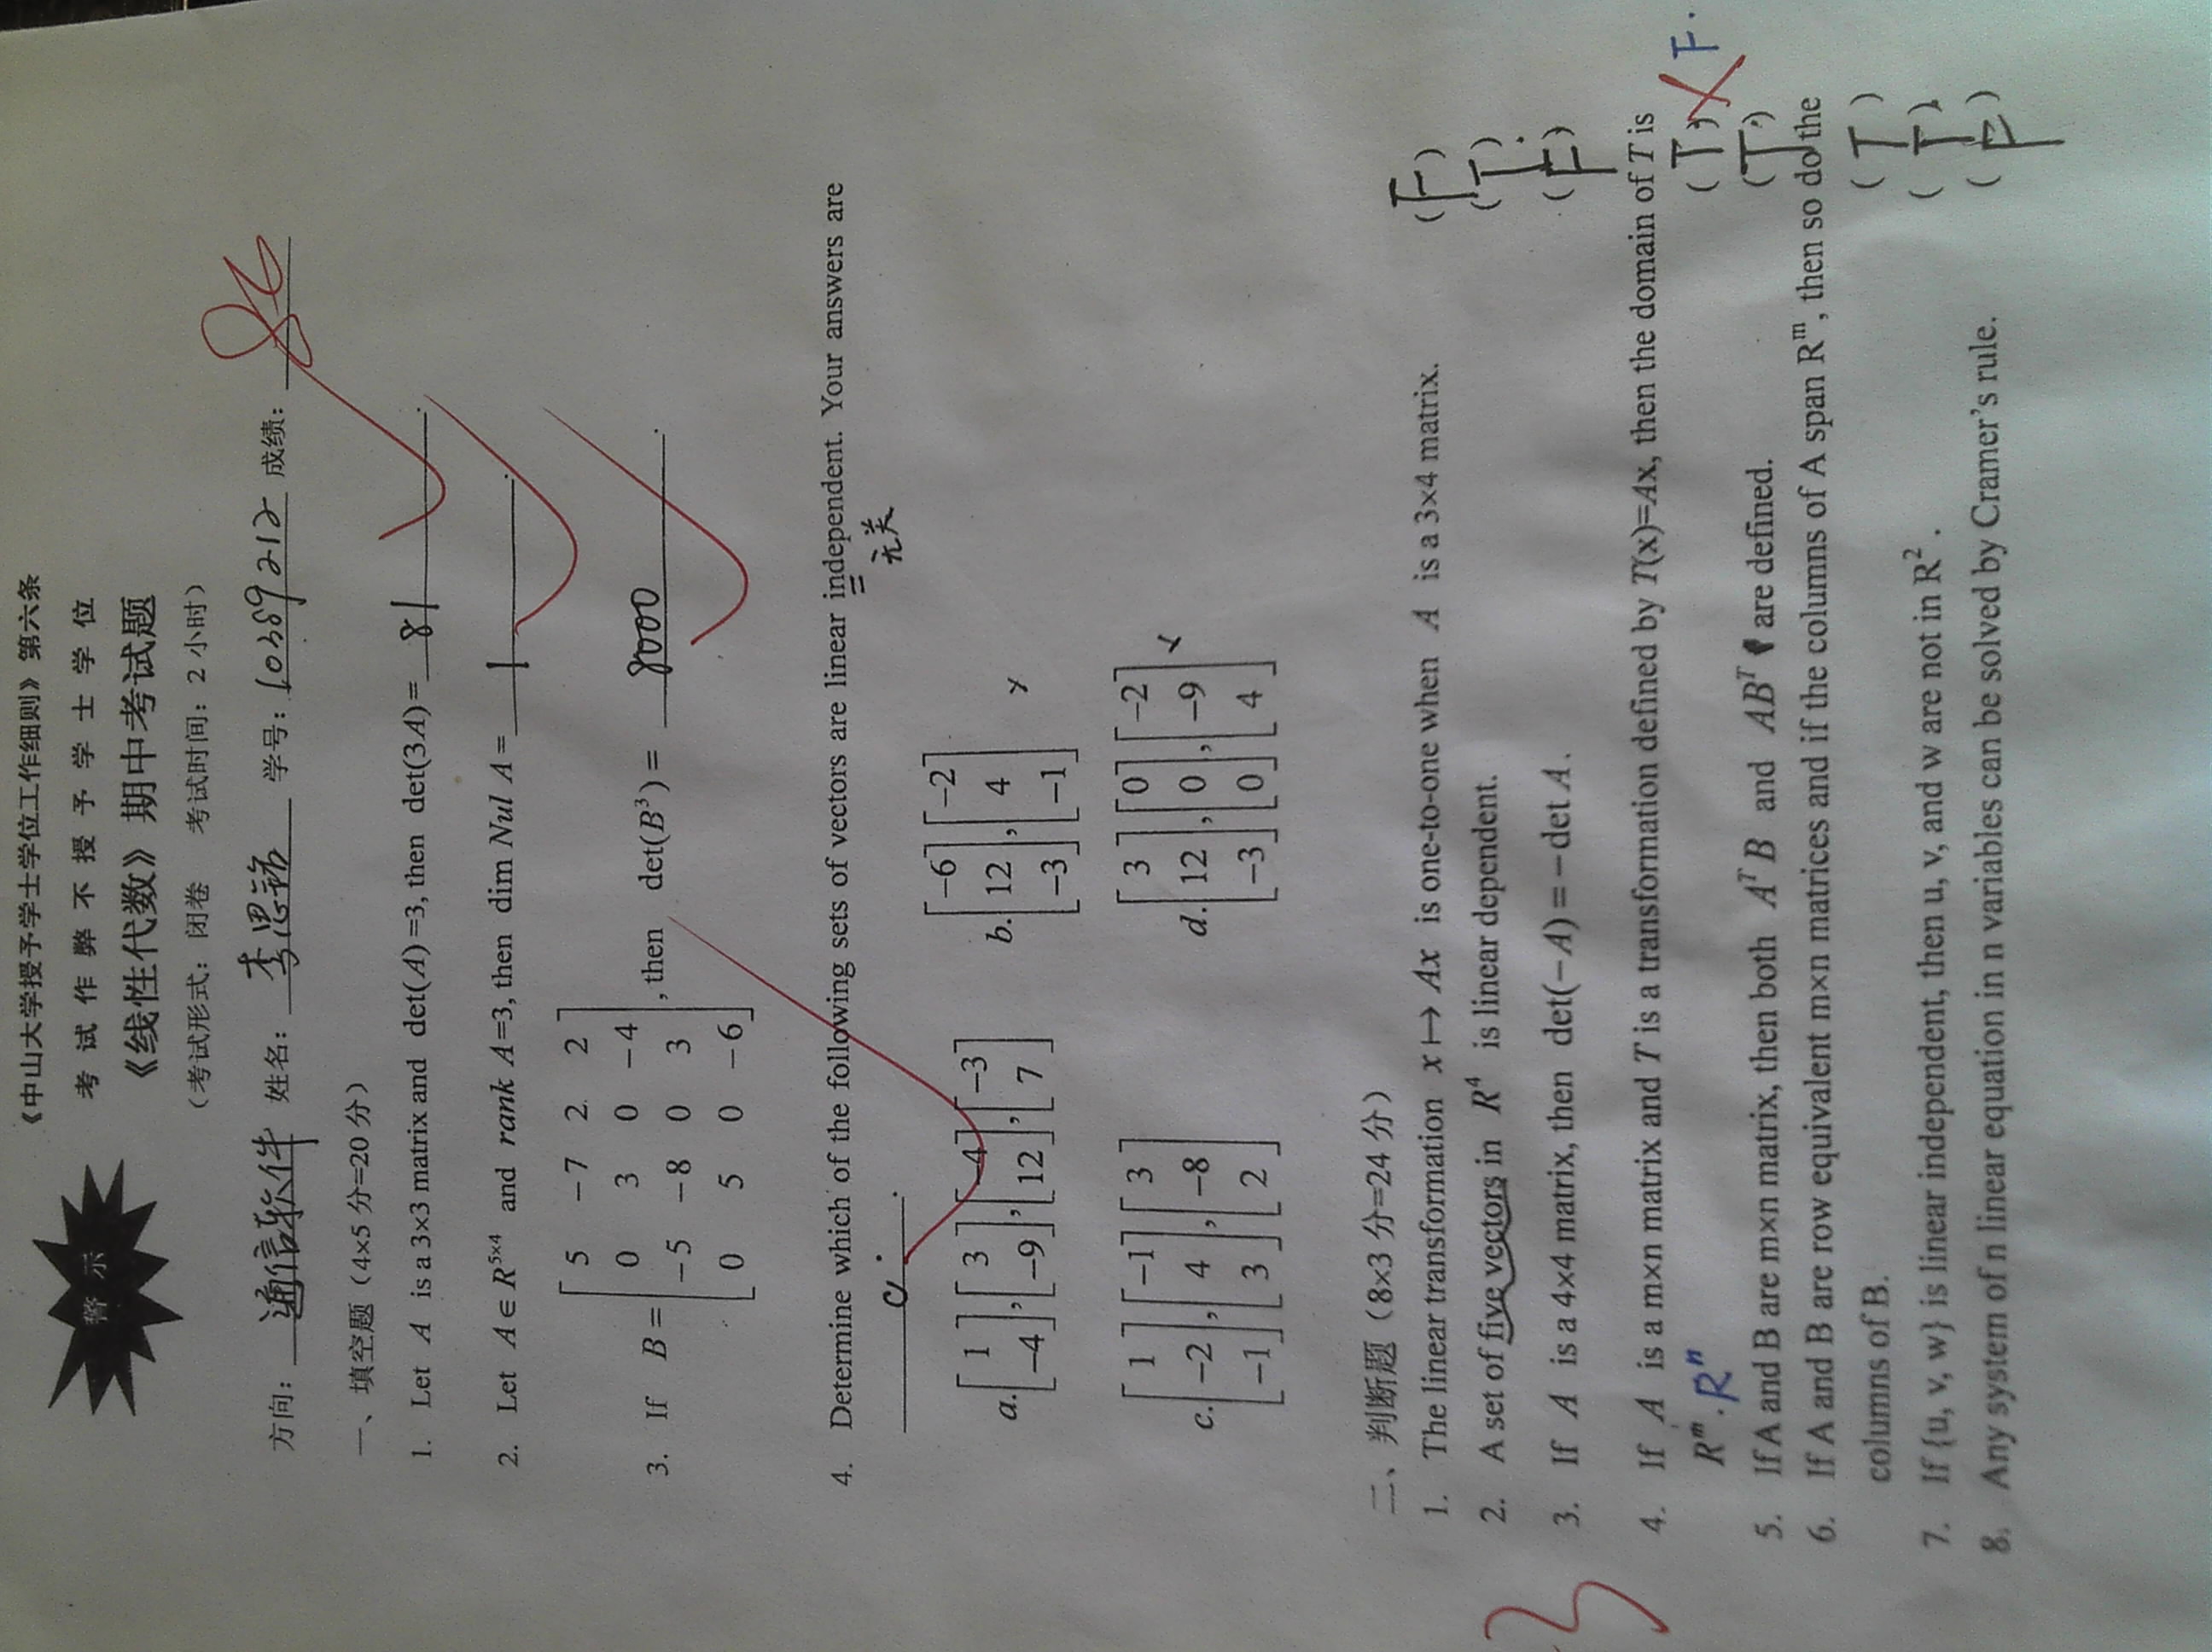 《中山大学授予学士学位工作细则》第六条
警示
考试作弊不授予学士学位
《线性代数》期中考试题
（考试形式：闭卷 考试时间：2 小时）
方向：通信软件 姓名：李思铭 学号：10389212 成绩：86
一、填空题（4×5 分=20 分）
1. Let A is a 3×3 matrix and det(A)=3, then det(3A)= 81 .
2. Let A∈R^{5×4} and rank A=3, then dim Nul A= 1 .
3. If B= [5 −7 2 2
0 3 0 −4
−5 −8 0 3
0 5 0 −6], then det(B³) = 8000 .
4. Determine which of the following sets of vectors are linear independent. Your answers are
c .
无关
a. [1 −4], [3 −9], [−4 12], [−3 7] b. [−6 12 −3], [−2 4 −1] ×
c. [1 −2 −1], [−1 4 3], [3 −8 2] d. [3 12 −3], [0 0 0], [−2 −9 4] ×
二、判断题（8×3 分=24 分）
1. The linear transformation x ↦ Ax is one-to-one when A is a 3×4 matrix. (F)
2. A set of five vectors in R⁴ is linear dependent. (T)
-3
3. If A is a 4×4 matrix, then det(−A) = −det A. (F)
4. If A is a m×n matrix and T is a transformation defined by T(x)=Ax, then the domain of T is
R^m. R^n (T) × F.
5. If A and B are m×n matrix, then both A^T B and AB^T are defined. (T)
6. If A and B are row equivalent m×n matrices and if the columns of A span R^m, then so do the
columns of B. (T)
7. If {u, v, w} is linear independent, then u, v, and w are not in R². (T)
8. Any system of n linear equation in n variables can be solved by Cramer's rule. (F)